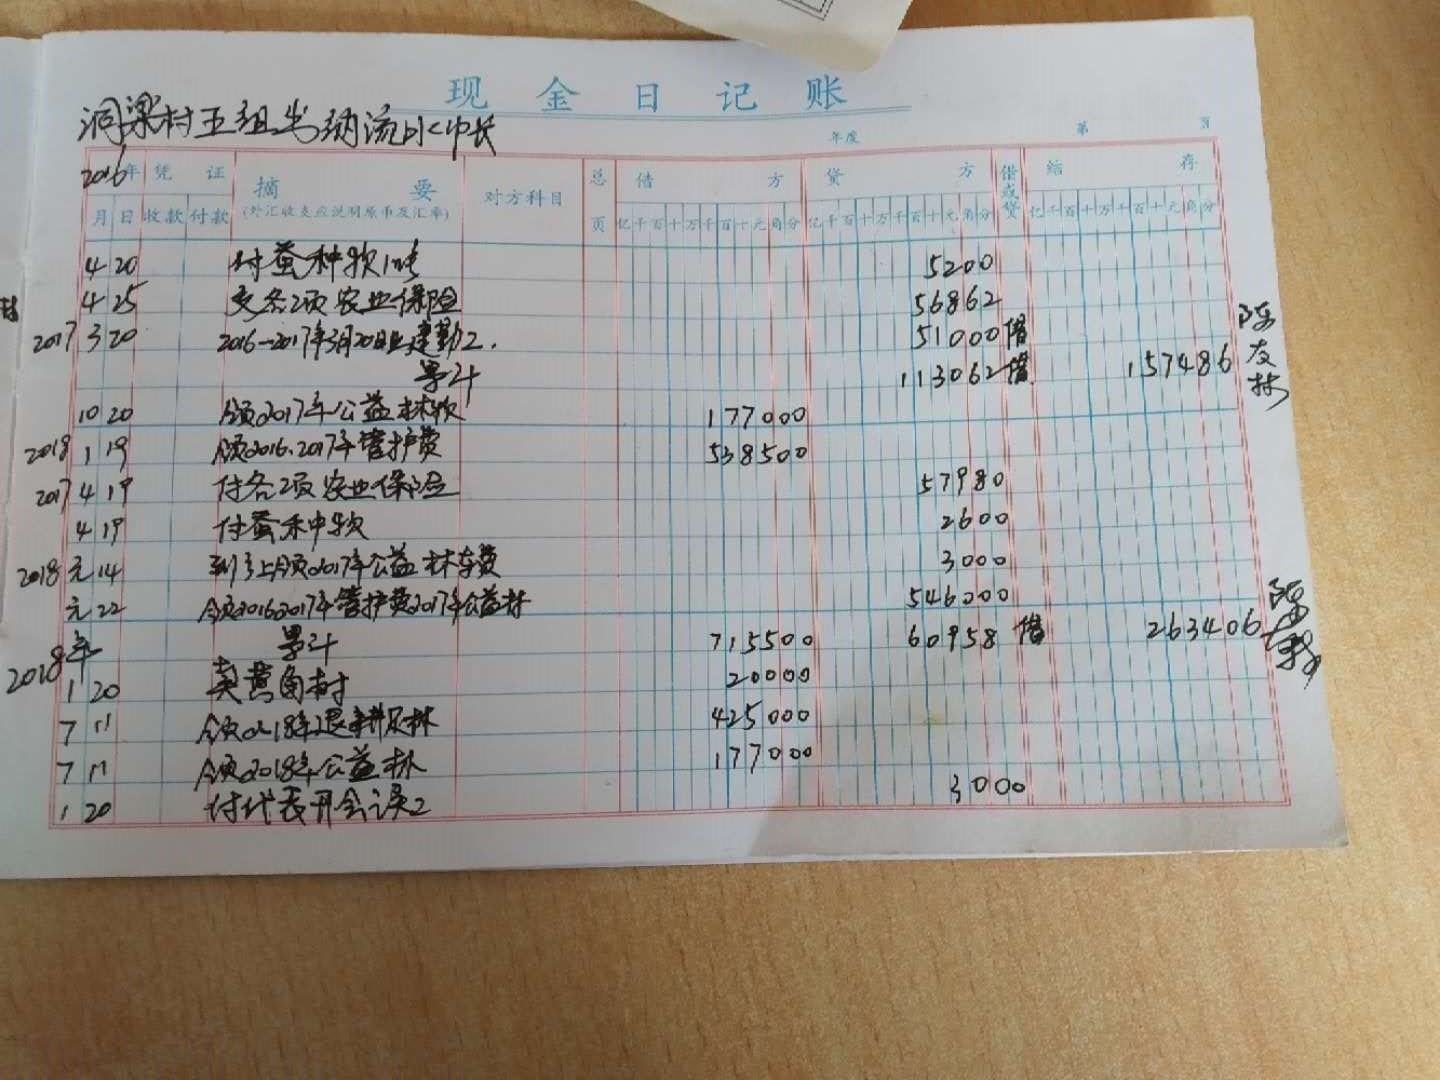 现金日记账
洞梁村五组出纳流水帐
年度 第 页
2016年 凭证 摘要 对方科目 总页 借方 贷方 借或贷 结存
月 日 收款 付款 (外汇收支应说明原币及汇率) 亿千百十万千百十元角分 亿千百十万千百十元角分 亿千百十万千百十元角分
4 20 付蚕种款 5200
4 25 交各项农业保险 56862
2017 3 20 2016-2017年3月20日止建勤工. 51000 借
累计 113062 借 157486 陈友林
10 20 领2017年公益林款 177000
2018 1 19 领2016.2017年管护费 538500
2017 4 19 付各项农业保险 57980
4 19 付蚕种款 2600
2018 元 14 到上领2017年公益林车费 3000
元 22 领20162017年管护费2017年公益林 546000
累计 715500 60958 借 263406
2018年
1 20 卖黄角树 20000
7 11 领2018年退耕还林 425000
7 11 领2018年公益林 177000
1 20 付代表开会误工 3000